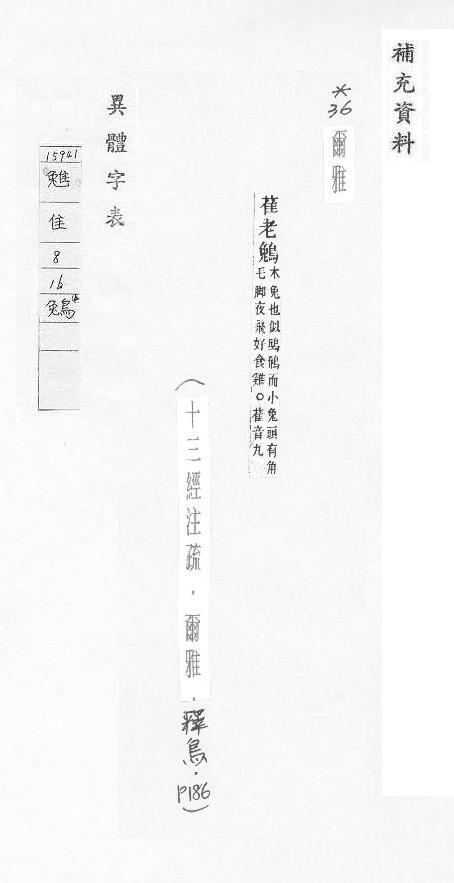 補充資料
*36
爾雅
萑老鵵
木兔也似鴟鵂而小兔頭有角
毛脚夜飛好食雞○萑音丸
(十三經注疏．爾雅．釋鳥．P186)
異體字表
15941
隹
8
16
鵵